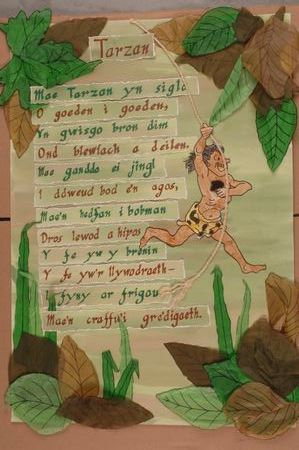 Tarzan
Mae Tarzan yn siglo
O goeden i goeden,
Yn gwisgo bron dim
Ond blewiach a deilen,
Mae ganddo ei jingl
I ddweud bod e'n agos,
Mae'n hedfan i bobman
Dros lewod a hipos
Y fe yw y brenin
Y fe yw'r llywodraeth-
I fyny ar frigau
Mae'n craffu'i gre'digaeth.